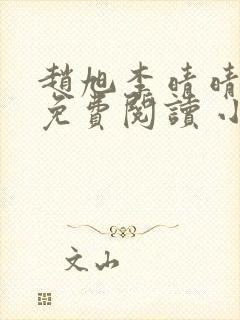 趙旭李晴晴
免費閱讀小
文山